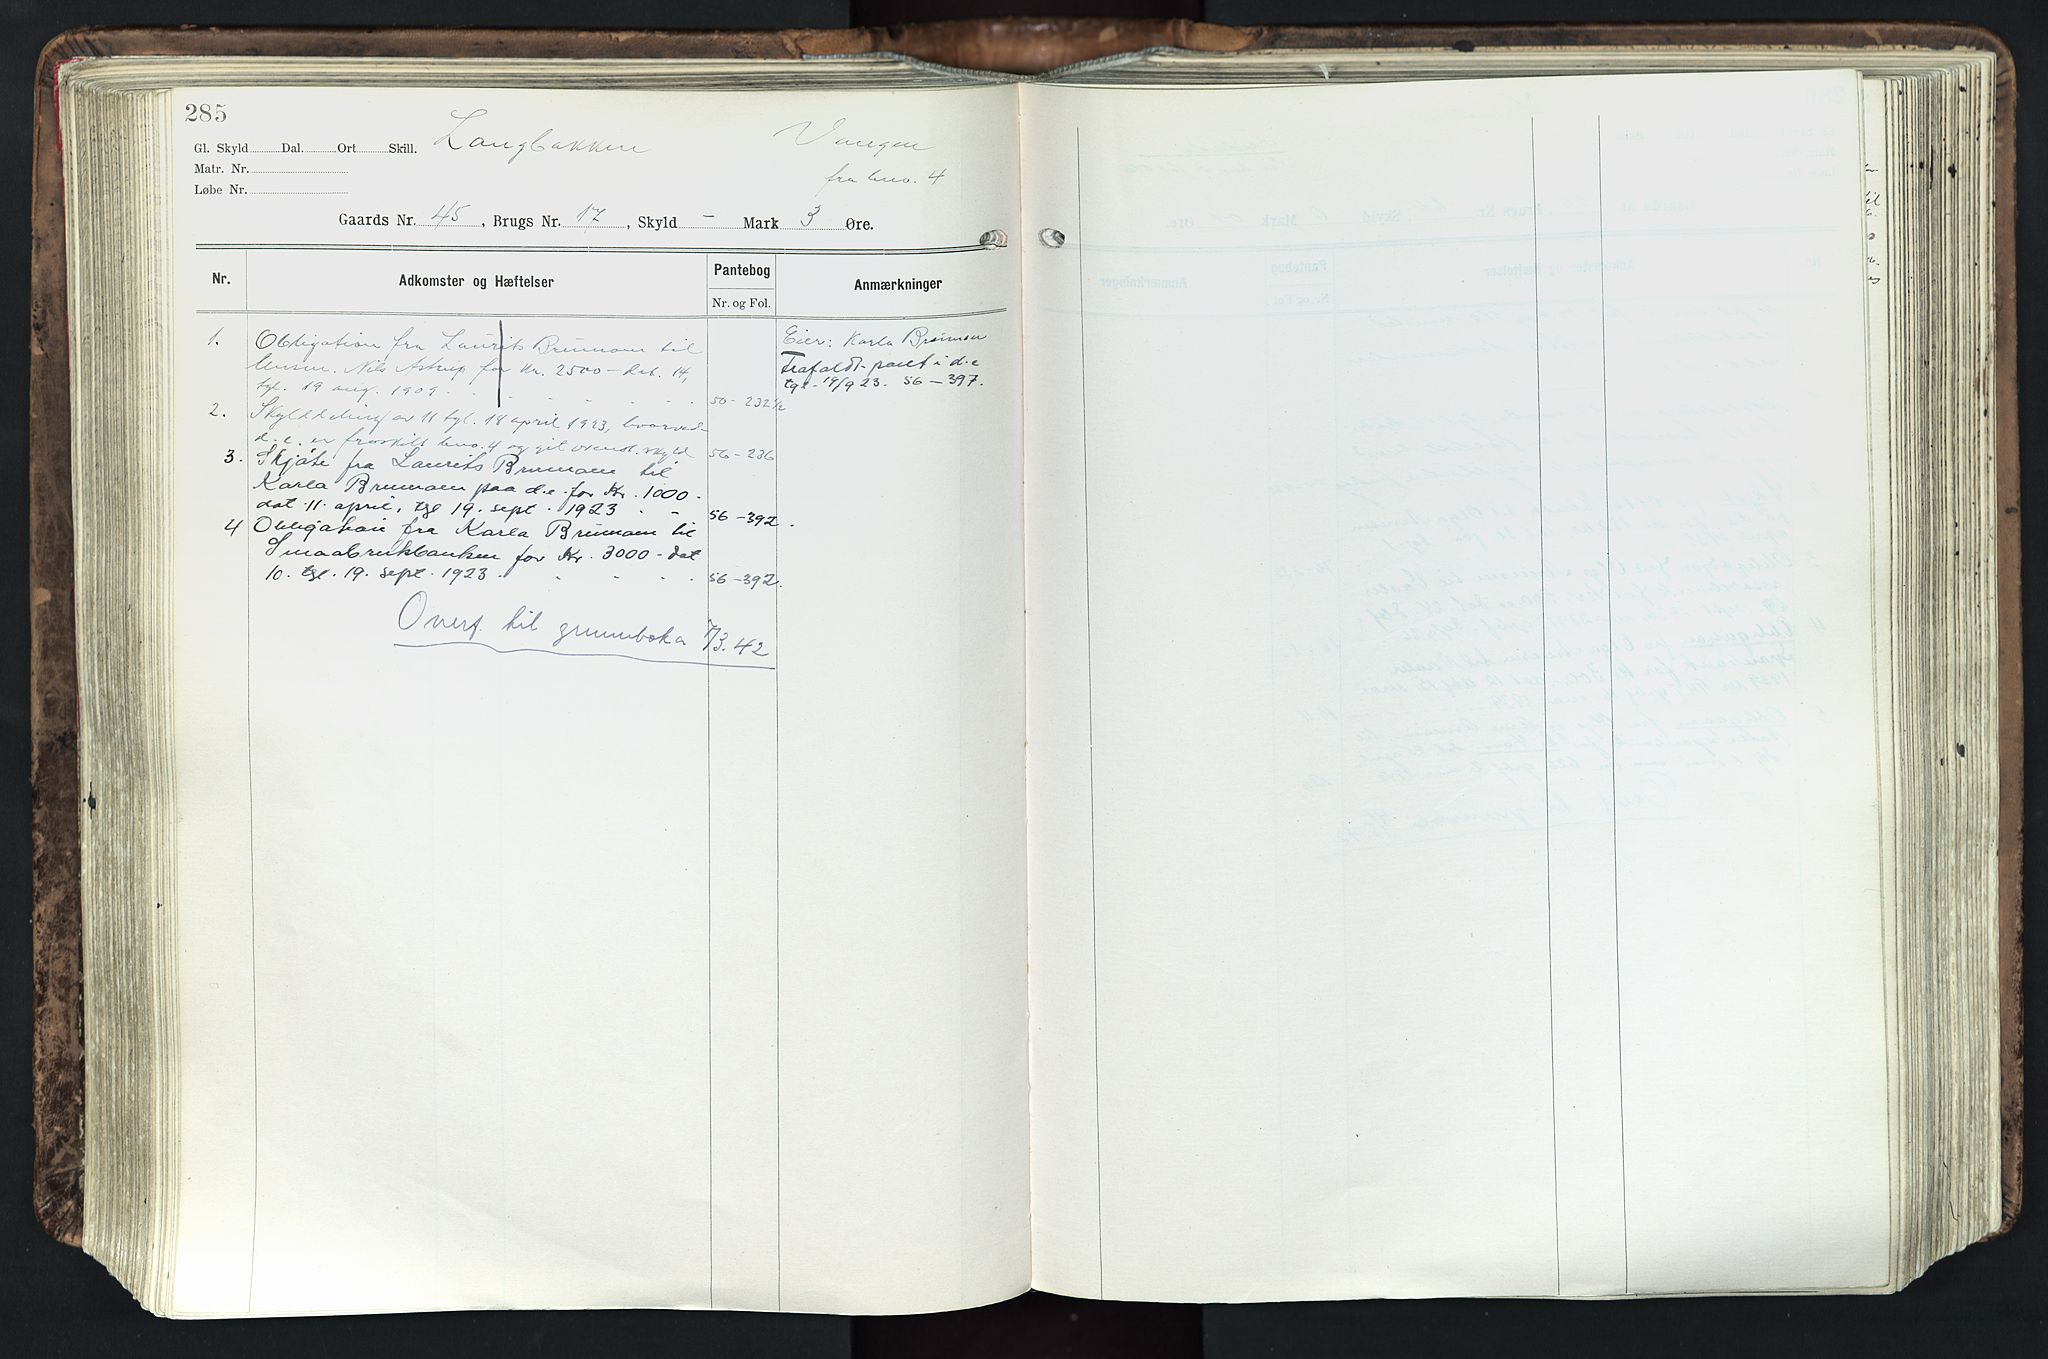 285
Gl. Skyld Dal. Ort Skill. Langbakken Vangen
Matr. Nr. fra bno. 4
Løbe Nr.
Gaards Nr. 45, Brugs Nr. 17, Skyld - Mark 3 Øre.
Nr. Adkomster og Hæftelser Pantebog Anmærkninger
Nr. og Fol.
1. Obligation fra Laurits Brumoen til
Nils Astrup for Kr. 2500 - dat. 14,
tgl. 19 aug. 1909. 50 - 232 1/2
Eier: Karla Brumoen
Frafaldt pant i d.e
tgl. 19/9 23. 56 - 397.
2. Skylddeling av 11 tgl. 18 april 1923, hvorved
d.e. er fraskilt bno. 4 og git ovenst. skyld 56 - 236
3. Skjøte fra Laurits Brumoen til
Karla Brumoen paa d.e. for Kr. 1000 -
dat 11. april, tgl 19. sept. 1923 56 - 392.
4 Obligation fra Karla Brumoen til
Smaabrukbanken for Kr. 3000 - dat
10. tgl. 19. sept. 1923. 56 - 392.
Overf. til grunnboka 7/3.42